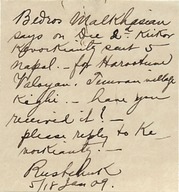 Bedros Malkhasian
says on Dec 2nd Krikor
Kevorkianty sent 5
napol. – for Haroutiun
Valoyan. Temran village
Keghi – have you
received it! –
please reply to Ke
vorkianty. –
Rustchuk
5/18 Jan 09.